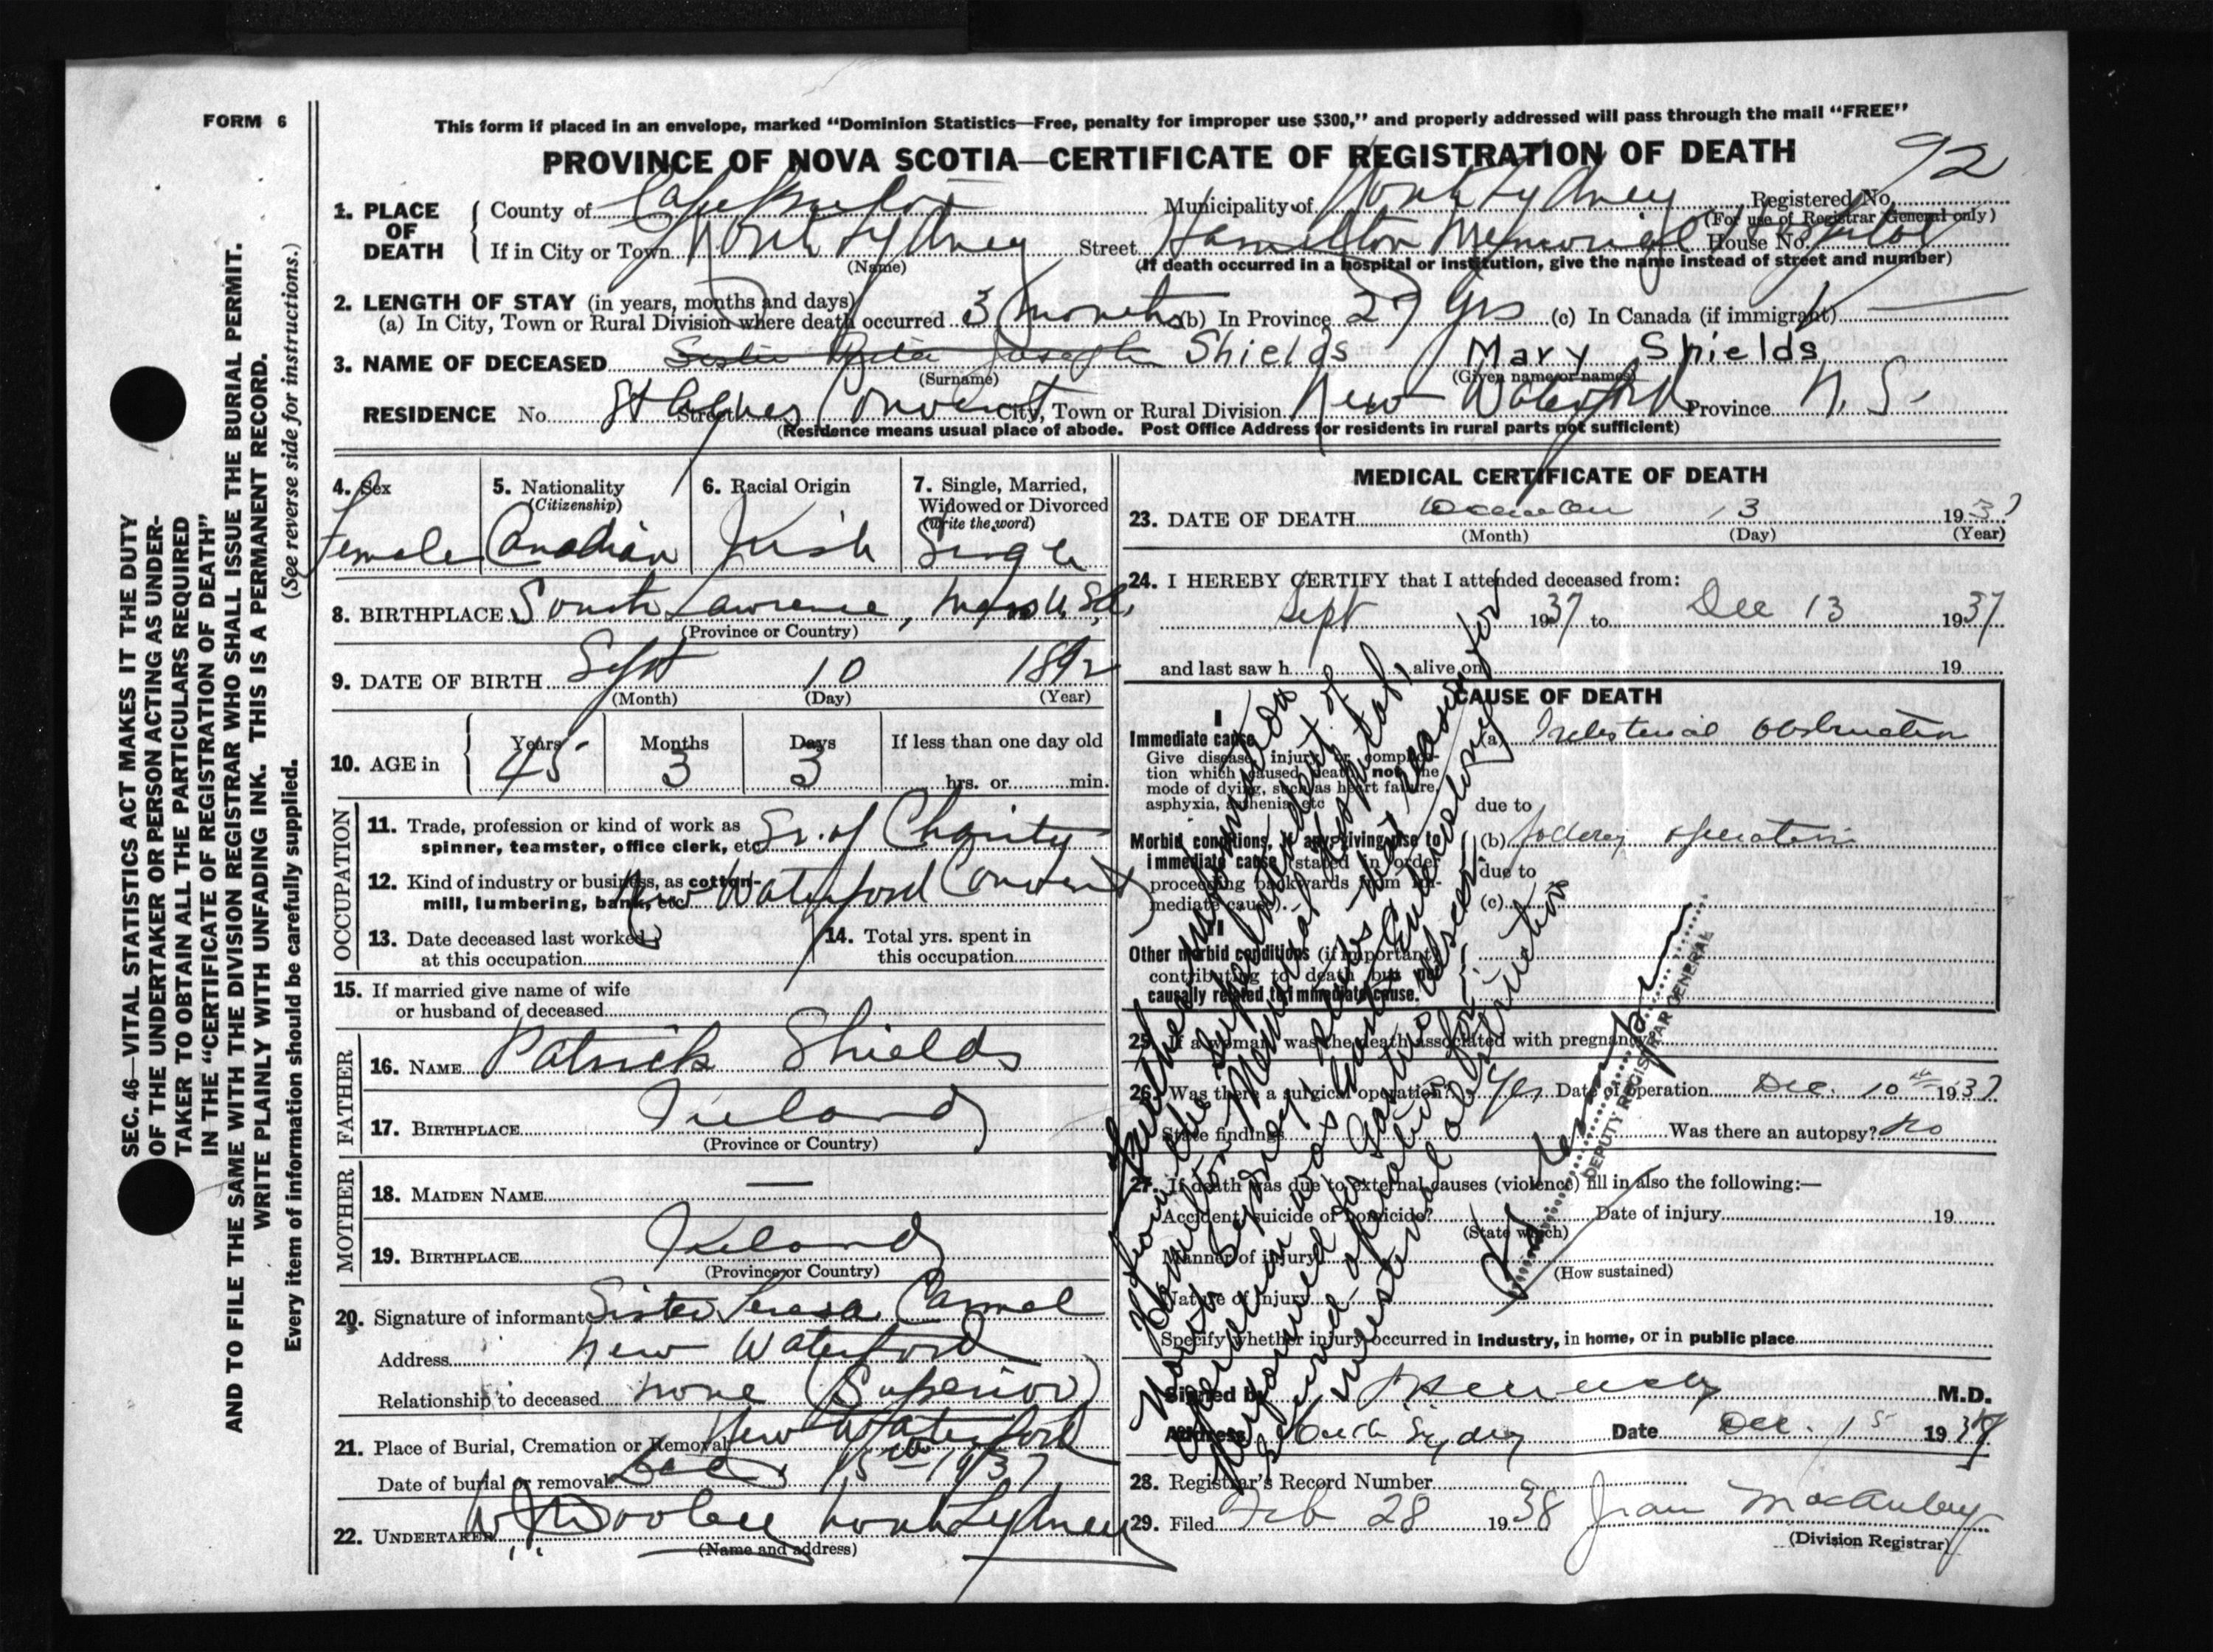 FORM 6
This form if placed in an envelope, marked "Dominion Statistics—Free, penalty for improper use $300," and properly addressed will pass through the mail "FREE"
PROVINCE OF NOVA SCOTIA—CERTIFICATE OF REGISTRATION OF DEATH
92
1. PLACE OF DEATH
County of Cape Breton Municipality of North Sydney Registered No.
(For use of Registrar General only)
If in City or Town North Sydney Street Hamilton Memorial Hospital House No.
(Name) (If death occurred in a hospital or institution, give the name instead of street and number)
2. LENGTH OF STAY (in years, months and days)
(a) In City, Town or Rural Division where death occurred 3 months (b) In Province 27 yrs (c) In Canada (if immigrant) —
3. NAME OF DECEASED Sister Rita Joseph Shields Mary Shields
(Surname) (Given name or names)
RESIDENCE No. St Agnes Convent Street City, Town or Rural Division New Waterford Province N. S.
(Residence means usual place of abode. Post Office Address for residents in rural parts not sufficient)
4. Sex
Female
5. Nationality
(Citizenship)
Canadian
6. Racial Origin
Irish
7. Single, Married, Widowed or Divorced
(Write the word)
Single
8. BIRTHPLACE South Lawrence, Mass U.S.A.
(Province or Country)
9. DATE OF BIRTH Sept 10 1892
(Month) (Day) (Year)
10. AGE in
Years Months Days If less than one day old
45 3 3 hrs. or min.
OCCUPATION
11. Trade, profession or kind of work as
spinner, teamster, office clerk, etc. Sr. of Charity
12. Kind of industry or business, as cotton-
mill, lumbering, bank, etc. New Waterford Convent
13. Date deceased last worked
at this occupation
14. Total yrs. spent in
this occupation
15. If married give name of wife
or husband of deceased
FATHER
16. NAME Patrick Shields
17. BIRTHPLACE Ireland
(Province or Country)
MOTHER
18. MAIDEN NAME —
19. BIRTHPLACE Ireland
(Province or Country)
20. Signature of informant Sister Teresa Carmel
Address New Waterford
Relationship to deceased none (Superior)
21. Place of Burial, Cremation or Removal New Waterford
Date of burial or removal Dec 15th 1937
22. UNDERTAKER W. J. Dooley North Sydney
(Name and address)
MEDICAL CERTIFICATE OF DEATH
23. DATE OF DEATH December 13 1937
(Month) (Day) (Year)
24. I HEREBY CERTIFY that I attended deceased from:
Sept 1937 to Dec 13 1937
and last saw h alive on 19
CAUSE OF DEATH
I
Immediate cause
Give disease, injury or complica-
tion which caused death, not the
mode of dying, such as heart failure,
asphyxia, asthenia, etc
(a) Intestinal Obstruction
due to
Morbid conditions, if any, giving rise to
immediate cause (stated in order
proceeding backwards from im-
mediate cause).
(b) following operation
due to
(c)
II
Other morbid conditions (if important)
contributing to death but not
causally related to immediate cause.
25. If a woman, was the death associated with pregnancy?
26. Was there a surgical operation? Yes Date of operation Dec. 10th 1937
State findings Was there an autopsy? No
27. If death was due to external causes (violence) fill in also the following:—
Accident, suicide or homicide? Date of injury 19
(State which)
Manner of injury
(How sustained)
Nature of injury
Specify whether injury occurred in industry, in home, or in public place
Signed by M.D.
Address North Sydney Date Dec. 15 1937
28. Registrar's Record Number
29. Filed Feb 28 1938 Jean MacAulay
(Division Registrar)
Further information
from the Superintendent of
Hamilton Memorial Hospital,
North Sydney states that reason for
operation was Gastro Enterostomy
performed for Gastric ulcer:
second operation for
intestinal obstruction
DEPUTY REGISTRAR GENERAL
SEC. 46—VITAL STATISTICS ACT MAKES IT THE DUTY
OF THE UNDERTAKER OR PERSON ACTING AS UNDER-
TAKER TO OBTAIN ALL THE PARTICULARS REQUIRED
IN THE "CERTIFICATE OF REGISTRATION OF DEATH"
AND TO FILE THE SAME WITH THE DIVISION REGISTRAR WHO SHALL ISSUE THE BURIAL PERMIT.
WRITE PLAINLY WITH UNFADING INK. THIS IS A PERMANENT RECORD.
Every item of information should be carefully supplied. (See reverse side for instructions.)